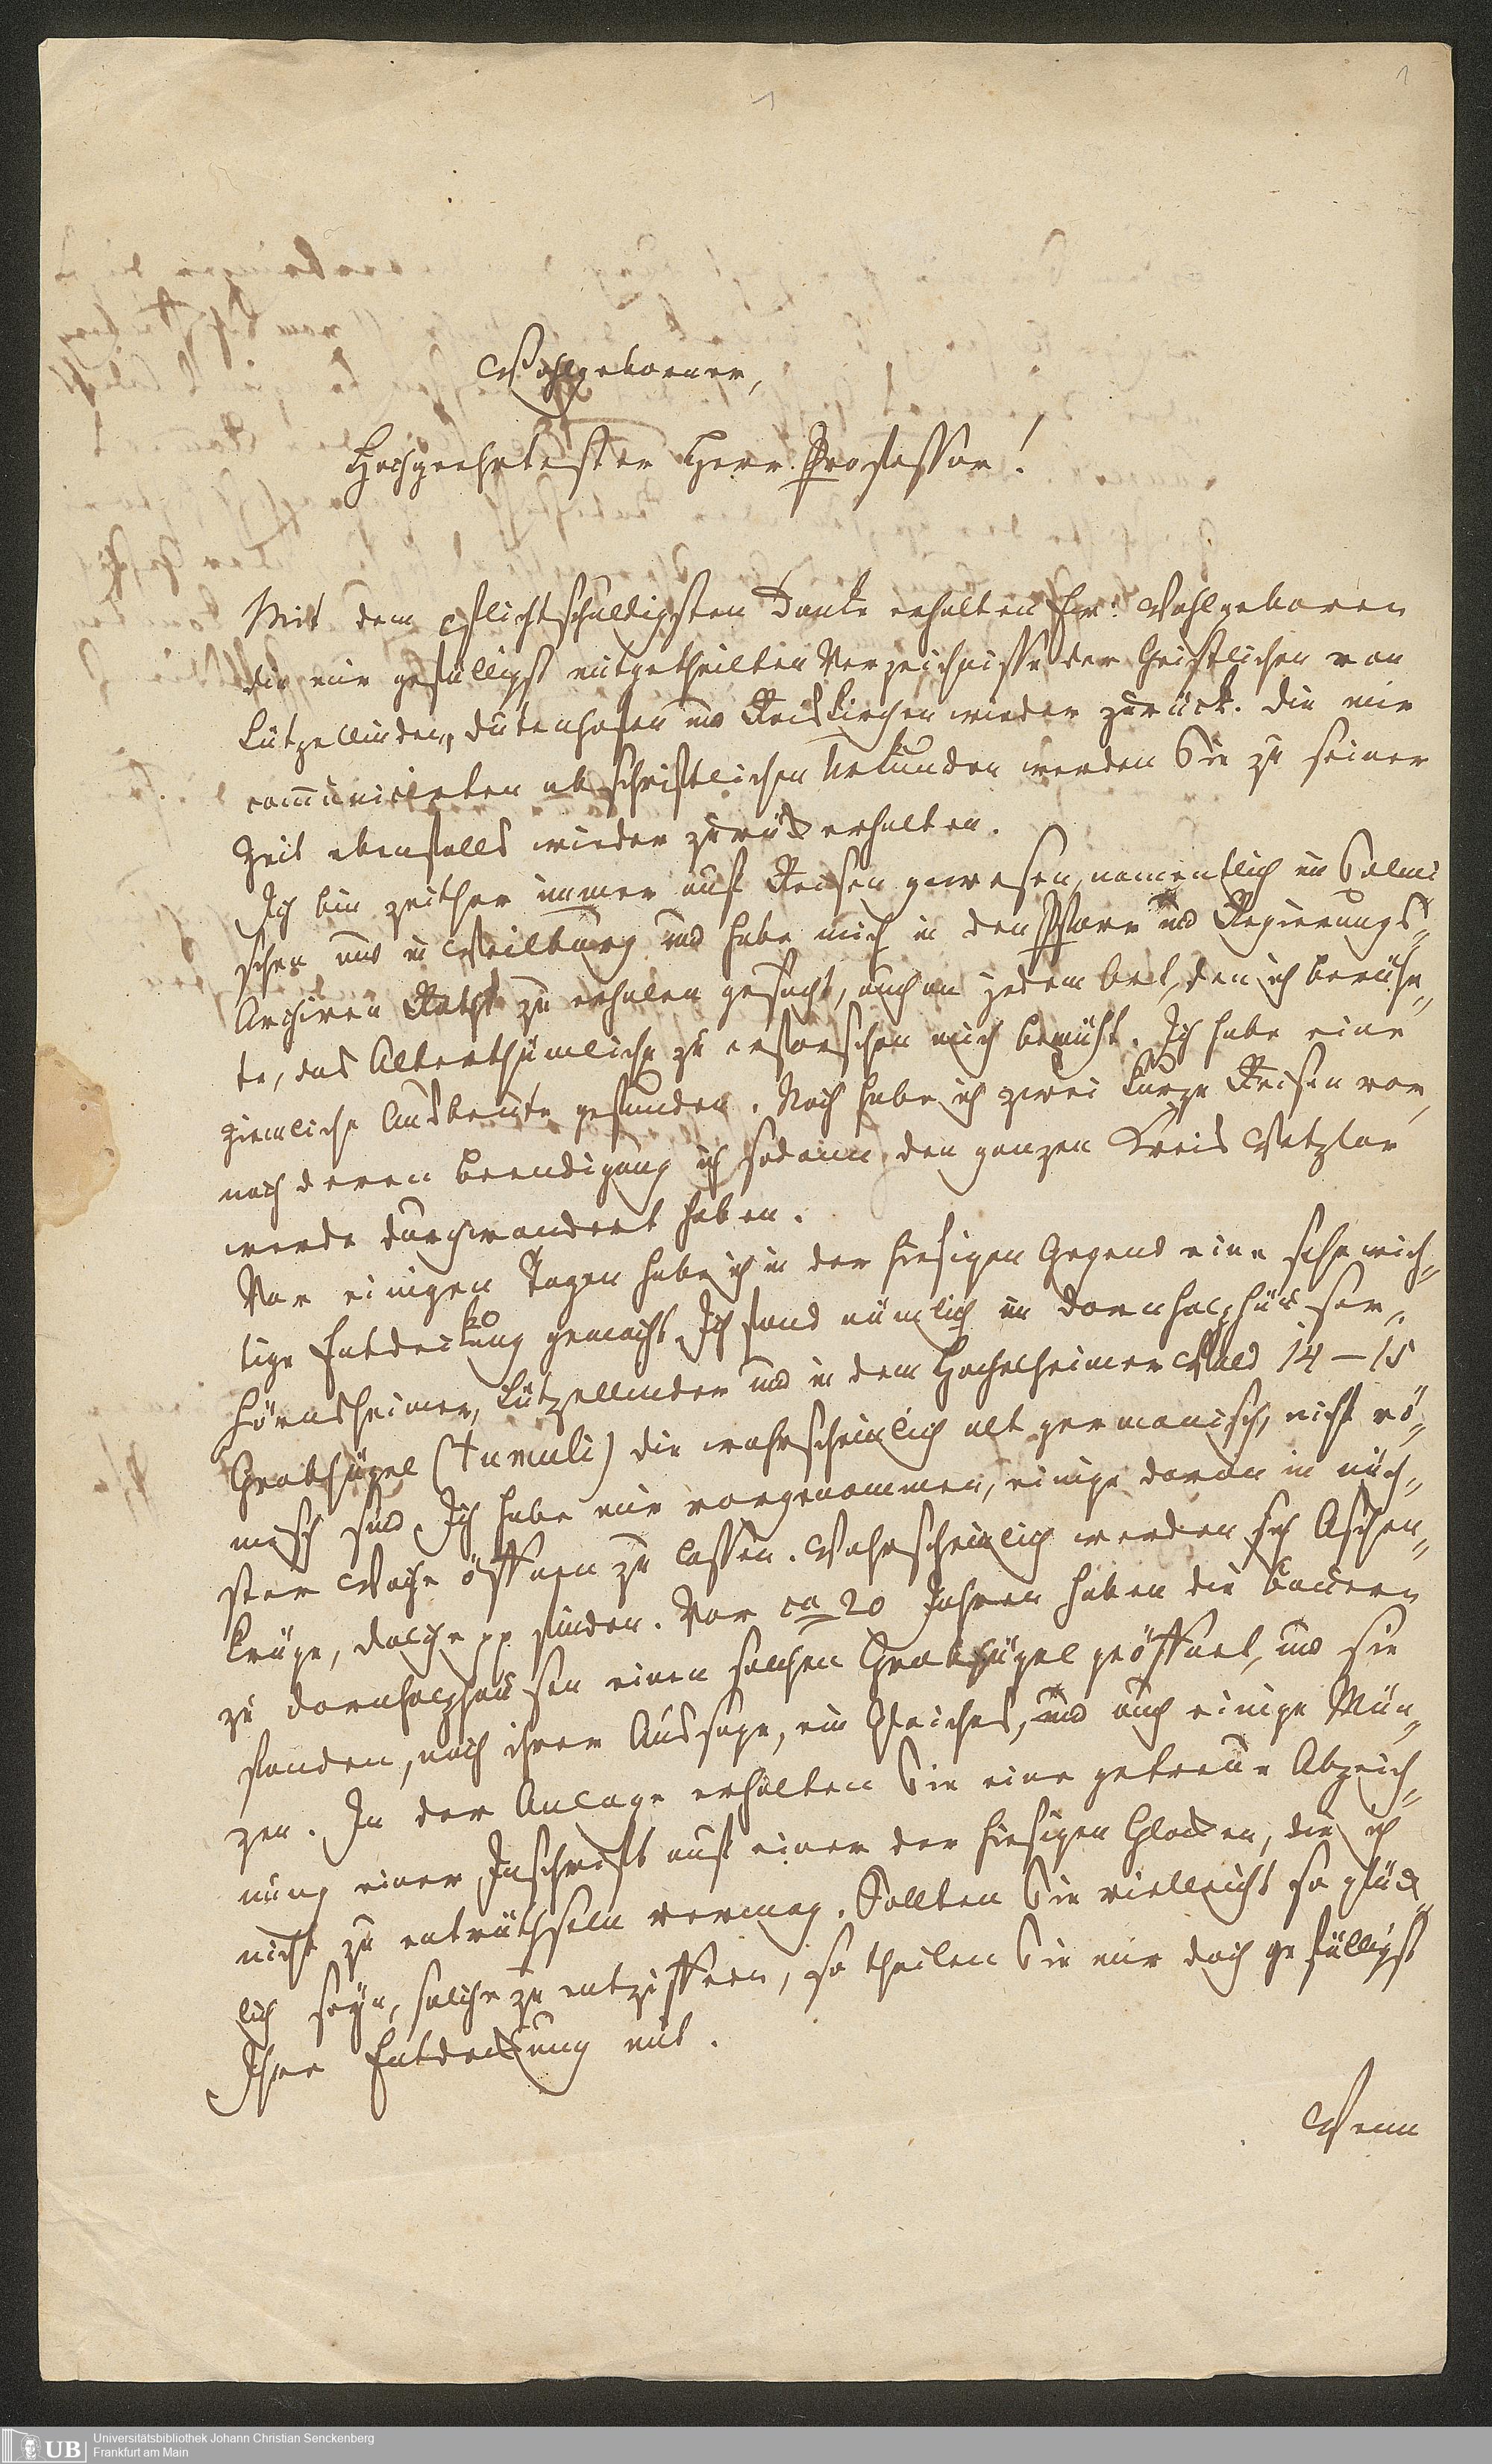 1
1
Wohlgeborner,
Hochgeehrtester Herr Professor!
Mit dem pflichtschuldigsten Danke erhalten Ew: Wohlgeboren
die mir gefälligst mitgetheilten Verzeichnisse der Geistlichen von
Lützellinden, Dutenhofen und Reiskirchen wieder zurück. Die mir
com̄unicirten abschriftlichen Urkunden werden Sie zu seiner
Zeit ebenfalls wieder zurück erhalten.
Ich bin zeither immer auf Reisen gewesen, namentlich im Solmi
schen und in Weilburg und habe mich in den Pfarr und Regierungs-
Archiven Raths zu erholen gesucht, auch an jedem Ort, den ich berühr-
te, das Alterthümliche zu erforschen mich bemüht. Ich habe eine
ziemliche Ausbeute gefunden. Noch habe ich zwei kurze Reisen vor,
nach deren Beendigung ich sodann den ganzen Kreis Wetzlar
werde durchwandert haben.
Vor einigen Tagen habe ich in der hiesigen Gegend eine sehr wich-
tige Entdeckung gemacht. Ich fand nämlich im Dornholzhäuser-
Hörnsheimer, Lützellinder und in dem Hochelheimer Wald 14 – 15
Grabhügel (tumuli) die wahrscheinlich alt germanisch, nicht rö-
misch sind. Ich habe mir vorgenommen, einige davon in näch-
ster Woche öffnen zu lassen. Wahrscheinlich werden sich Aschen-
krüge, Dolche pp finden. Vor ca 20 Jahren haben die Bauern
zu Dornholzhausen einen solchen Grabhügel geöffnet, und sie
fanden, nach ihrer Aussage, ein Gleiches, und auch einige Mün-
zen. In der Anlage erhalten Sie eine getreue Abzeich-
nung einer Inschrift auf einer der hiesigen Glocken, die ich
nicht zu enträthseln vermag. Sollten Sie vielleicht so glück-
lich seyn, solche zu entziffern, so theilen Sie mir doch gefälligst
Ihre Entdeckung mit.
Wenn
UB
Universitätsbibliothek Johann Christian Senckenberg
Frankfurt am Main